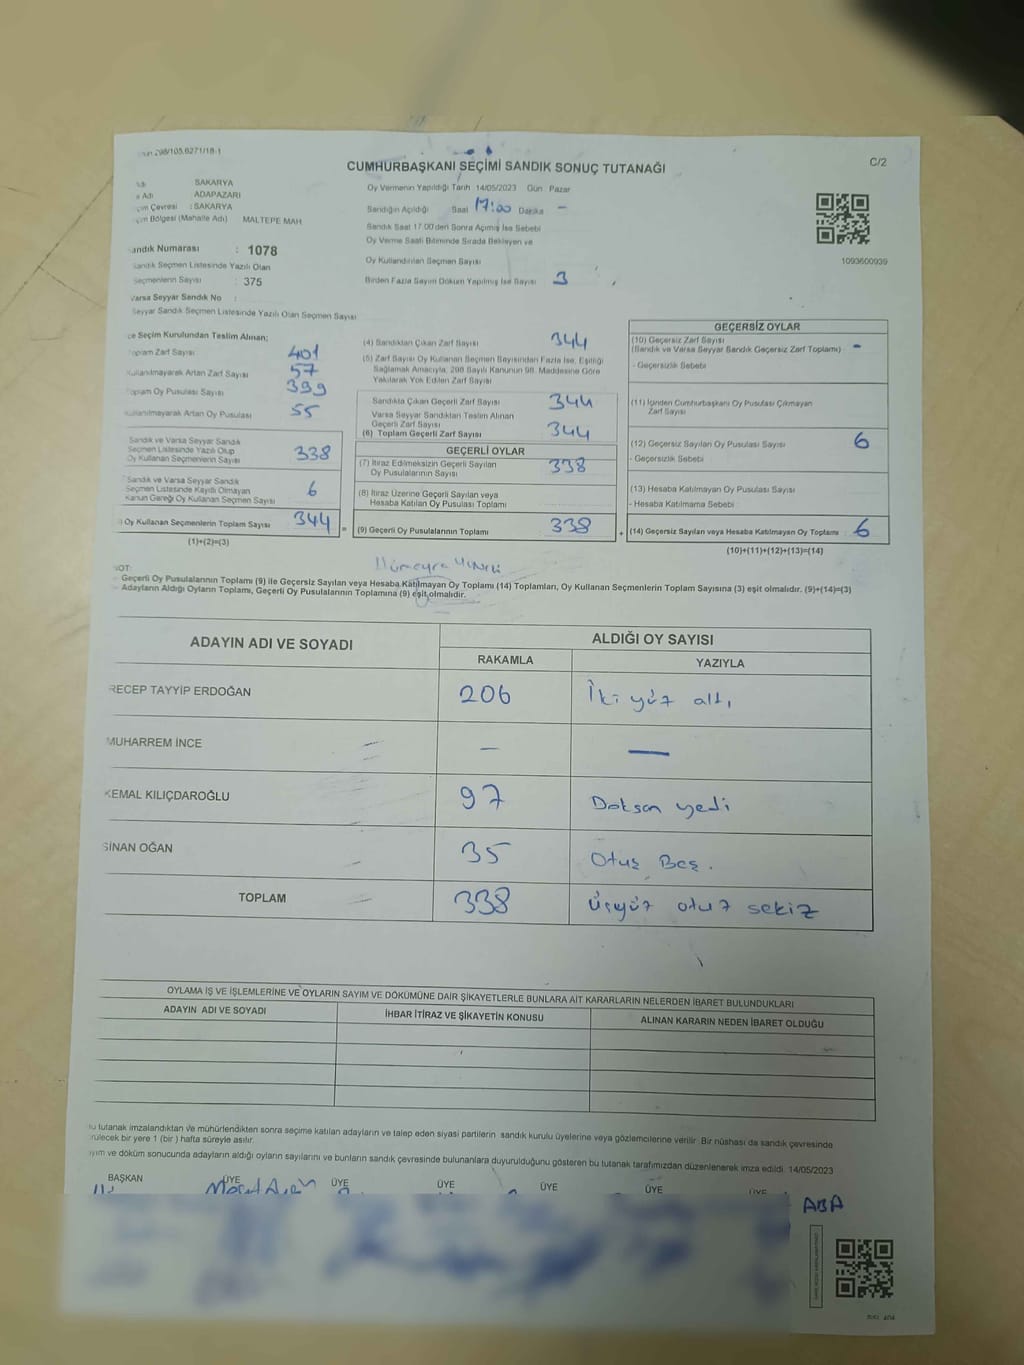 298/105.6271/18-1
C/2
CUMHURBAŞKANI SEÇİMİ SANDIK SONUÇ TUTANAĞI
SAKARYA
Adı ADAPAZARI
Çevresi : SAKARYA
Bölgesi (Mahalle Adı) MALTEPE MAH
Oy Vermenin Yapıldığı Tarih 14/05/2023 Gün Pazar
Sandığın Açıldığı Saat 17:00 Dakika -
Sandık Saat 17.00'den Sonra Açımış İse Sebebi
Oy Verme Saati Bitiminde Sırada Bekleyen ve
Oy Kullandırılan Seçmen Sayısı
Birden Fazla Sayım Döküm Yapılmış İse Sayısı 3
1093600939
andık Numarası : 1078
Sandık Seçmen Listesinde Yazılı Olan
Seçmenlerin Sayısı : 375
Varsa Seyyar Sandık No :
Seyyar Sandık Seçmen Listesinde Yazılı Olan Seçmen Sayısı
çe Seçim Kurulundan Teslim Alınan;
oplam Zarf Sayısı 401
Kullanılmayarak Artan Zarf Sayısı 57
oplam Oy Pusulası Sayısı 399
Kullanılmayarak Artan Oy Pusulası 55
Sandık ve Varsa Seyyar Sandık
Seçmen Listesinde Yazılı Olup
Oy Kullanan Seçmenlerin Sayısı 338
Sandık ve Varsa Seyyar Sandık
Seçmen Listesinde Kayıtlı Olmayan
Kanun Gereği Oy Kullanan Seçmen Sayısı 6
Oy Kullanan Seçmenlerin Toplam Sayısı 344 =
(1)+(2)=(3)
(4) Sandıktan Çıkan Zarf Sayısı 344
(5) Zarf Sayısı Oy Kullanan Seçmen Sayısından Fazla İse, Eşitliği
Sağlamak Amacıyla, 298 Sayılı Kanunun 98. Maddesine Göre
Yakılarak Yok Edilen Zarf Sayısı
Sandıkta Çıkan Geçerli Zarf Sayısı 344
Varsa Seyyar Sandıktan Teslim Alınan
Geçerli Zarf Sayısı
(6) Toplam Geçerli Zarf Sayısı 344
GEÇERLİ OYLAR
(7) İtiraz Edilmeksizin Geçerli Sayılan
Oy Pusulalarının Sayısı 338
(8) İtiraz Üzerine Geçerli Sayılan veya
Hesaba Katılan Oy Pusulası Toplamı
(9) Geçerli Oy Pusulalarının Toplamı 338 +
GEÇERSİZ OYLAR
(10) Geçersiz Zarf Sayısı
(Sandık ve Varsa Seyyar Sandık Geçersiz Zarf Toplamı) -
- Geçersizlik Sebebi
(11) İçinden Cumhurbaşkanı Oy Pusulası Çıkmayan
Zarf Sayısı
(12) Geçersiz Sayılan Oy Pusulası Sayısı 6
- Geçersizlik Sebebi
(13) Hesaba Katılmayan Oy Pusulası Sayısı
- Hesaba Katılmama Sebebi
(14) Geçersiz Sayılan veya Hesaba Katılmayan Oy Toplamı 6
(10)+(11)+(12)+(13)=(14)
NOT:
Geçerli Oy Pusulalarının Toplamı (9) ile Geçersiz Sayılan veya Hesaba Katılmayan Oy Toplamı (14) Toplamları, Oy Kullanan Seçmenlerin Toplam Sayısına (3) eşit olmalıdır. (9)+(14)=(3)
Adayların Aldığı Oyların Toplamı, Geçerli Oy Pusulalarının Toplamına (9) eşit olmalıdır.
ADAYIN ADI VE SOYADI
ALDIĞI OY SAYISI
RAKAMLA YAZIYLA
RECEP TAYYİP ERDOĞAN 206 İki yüz altı
MUHARREM İNCE — —
KEMAL KILIÇDAROĞLU 97 Doksan yedi
SİNAN OĞAN 35 Otuz Beş.
TOPLAM 338 üçyüz otuz sekiz
OYLAMA İŞ VE İŞLEMLERİNE VE OYLARIN SAYIM VE DÖKÜMÜNE DAİR ŞİKAYETLERLE BUNLARA AİT KARARLARIN NELERDEN İBARET BULUNDUKLARI
ADAYIN ADI VE SOYADI İHBAR İTİRAZ VE ŞİKAYETİN KONUSU ALINAN KARARIN NEDEN İBARET OLDUĞU
bu tutanak imzalandıktan ve mühürlendikten sonra seçime katılan adayların ve talep eden siyasi partilerin sandık kurulu üyelerine veya gözlemcilerine verilir. Bir nüshası da sandık çevresinde
rülecek bir yere 1 (bir) hafta süreyle asılır.
ayım ve döküm sonucunda adayların aldığı oyların sayılarını ve bunların sandık çevresinde bulunanlara duyurulduğunu gösteren bu tutanak tarafımızdan düzenlenerek imza edildi. 14/05/2023
BAŞKAN ÜYE ÜYE ÜYE ÜYE ÜYE ÜYE
ABA